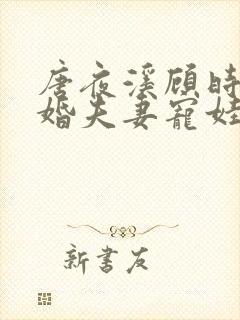 唐夜溪顾时
婚夫妻宠娃
新书友